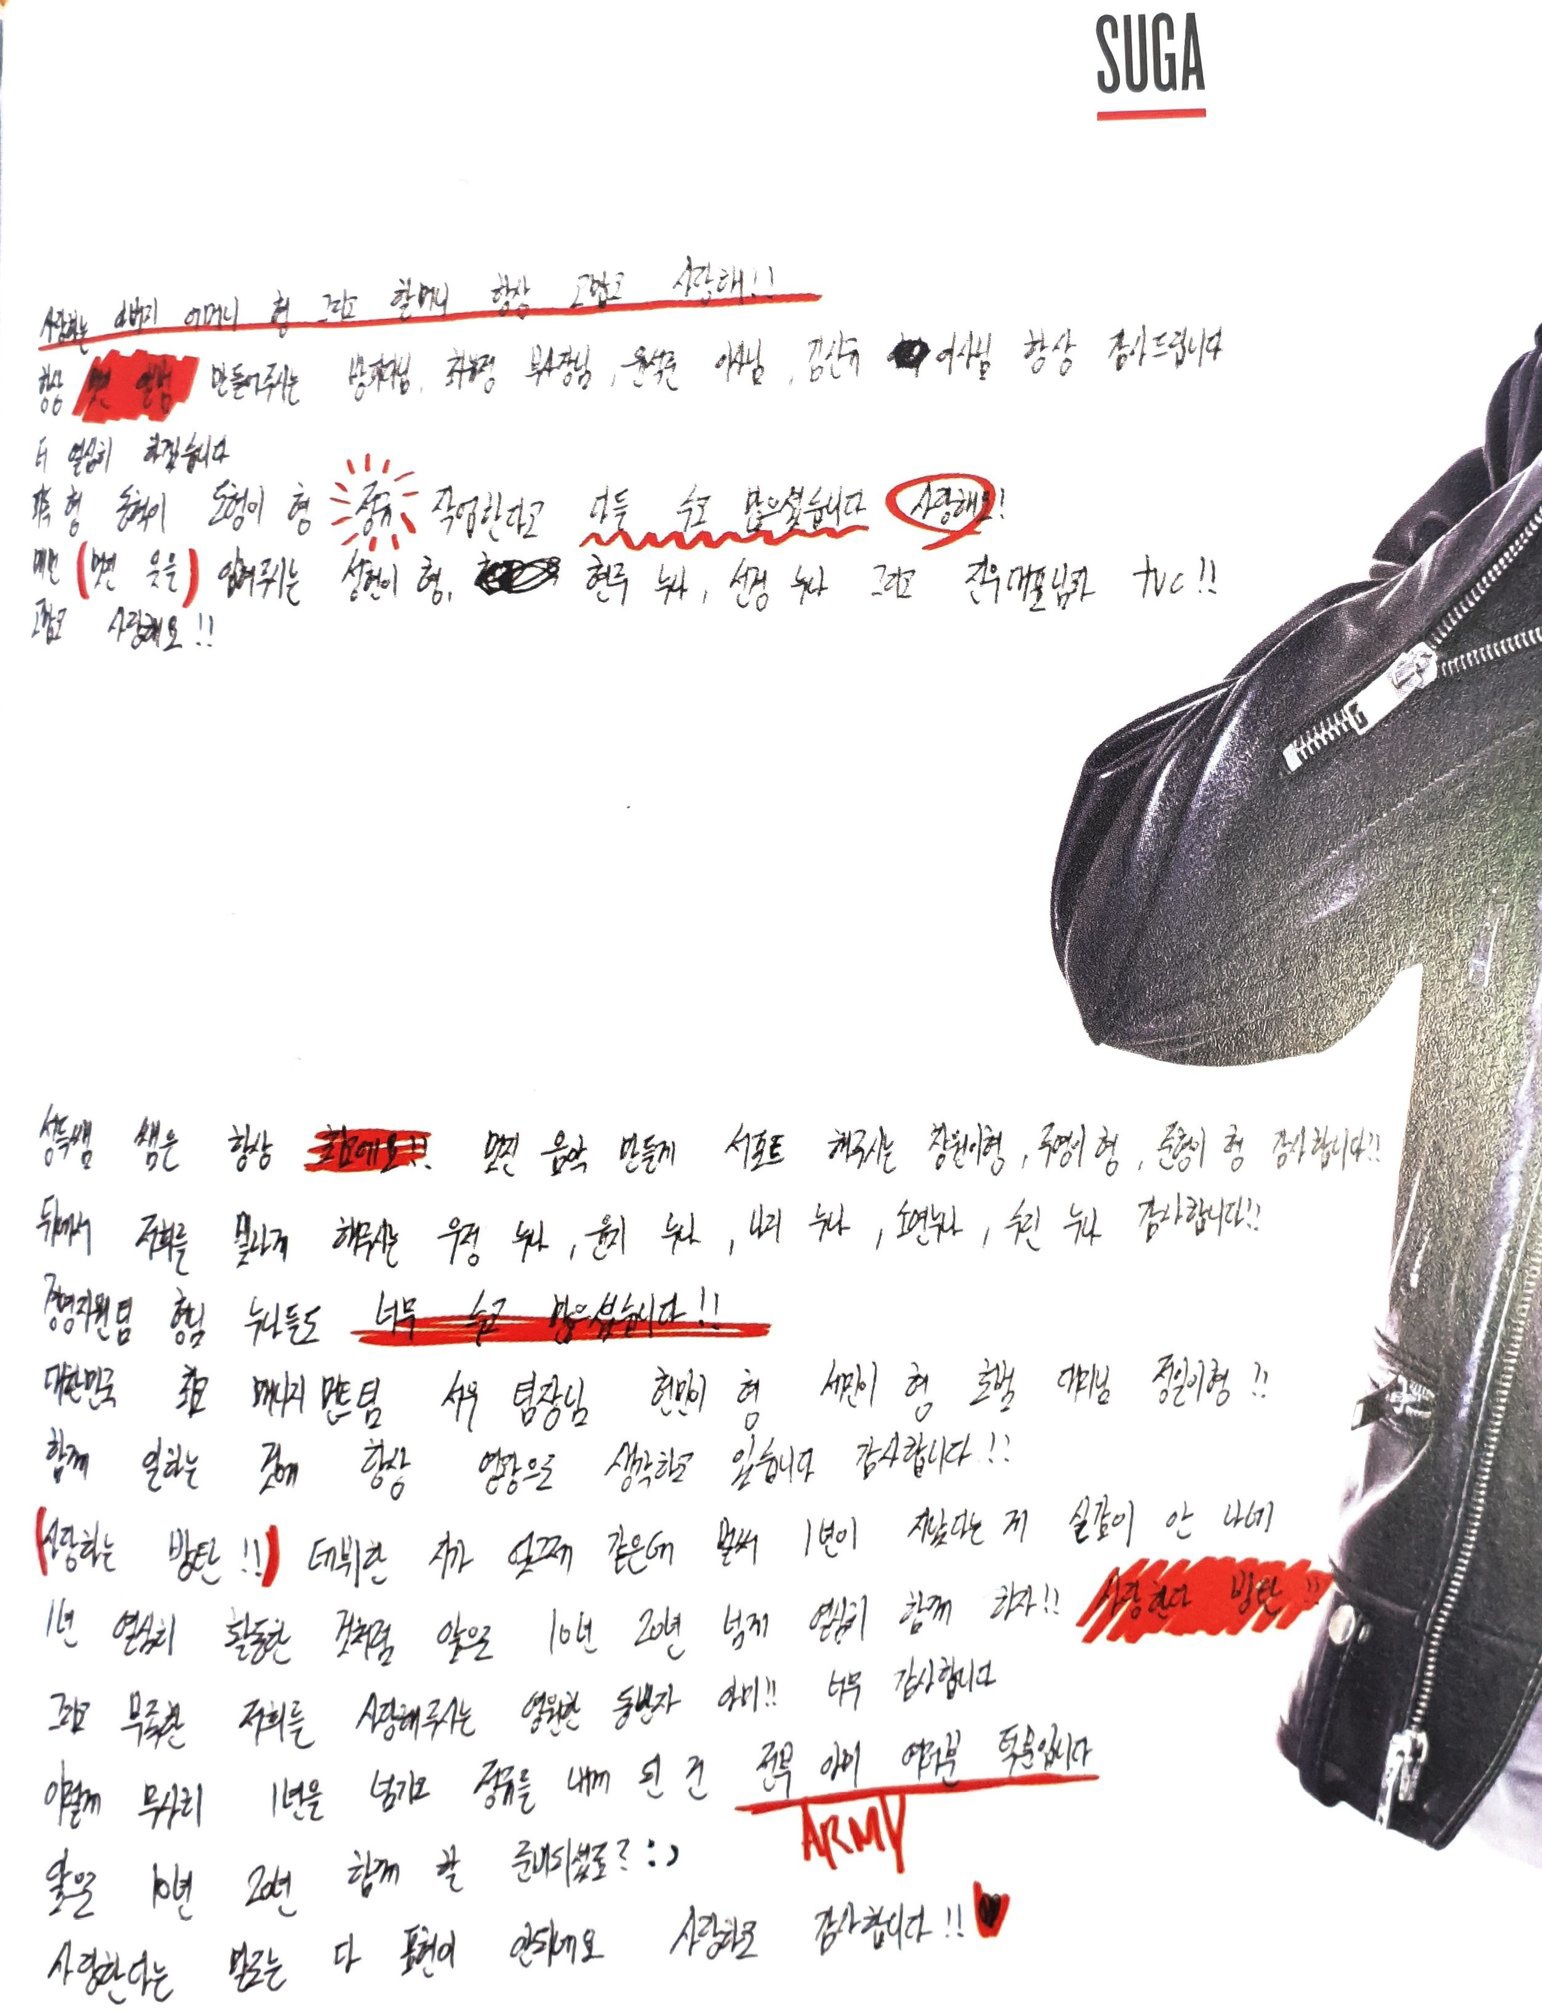 SUGA
사랑하는 아버지 어머니 형 그리고 할머니 항상 고맙고 사랑해!!
항상 멋진 앨범 만들어주시는 방피디님, 최유정 부사장님, 윤석준 이사님, 김신규 이사님 항상 감사드립니다
더 열심히 하겠습니다
형 동혁이 도형이 형 정규 작업한다고 다들 수고 많으셨습니다 사랑해요!
매번 (멋진 옷을) 입혀주시는 성현이 형, 현주 누나, 선경 누나 그리고 진우대표님과 tvc!!
고맙고 사랑해요!!
성득쌤 쌤은 항상 최고에요!! 멋진 음악 만들게 서포트 해주시는 창원이형, 주영이 형, 준형이 형 감사합니다!!
뒤에서 저희를 빛나게 해주시는 우정 누나, 윤지 누나, 나리 누나, 소연누나, 수린 누나 감사합니다!!
경영지원팀 형님 누나들도 너무 수고 많으셨습니다!!
대한민국 최고 매니지먼트팀 서우 팀장님 현민이 형 서민이 형 호범 대리님 정일이형!!
함께 일하는 것에 항상 영광으로 생각하고 있습니다 감사합니다!!
(사랑하는 방탄!!) 데뷔한 지가 엊그제 같은데 벌써 1년이 지났다는 게 실감이 안 나네
1년 열심히 활동한 것처럼 앞으로 10년 20년 넘게 열심히 함께 하자!! 사랑한다 방탄!!
그리고 부족한 저희를 사랑해주시는 영원한 동반자 아미!! 너무 감사합니다
이렇게 무사히 1년을 넘기고 정규를 내게 된 건 전부 아미 여러분 덕분입니다
ARMY
앞으로 10년 20년 함께 할 준비되셨죠? :)
사랑한다는 말로는 다 표현이 안되네요 사랑하고 감사합니다!! ♥